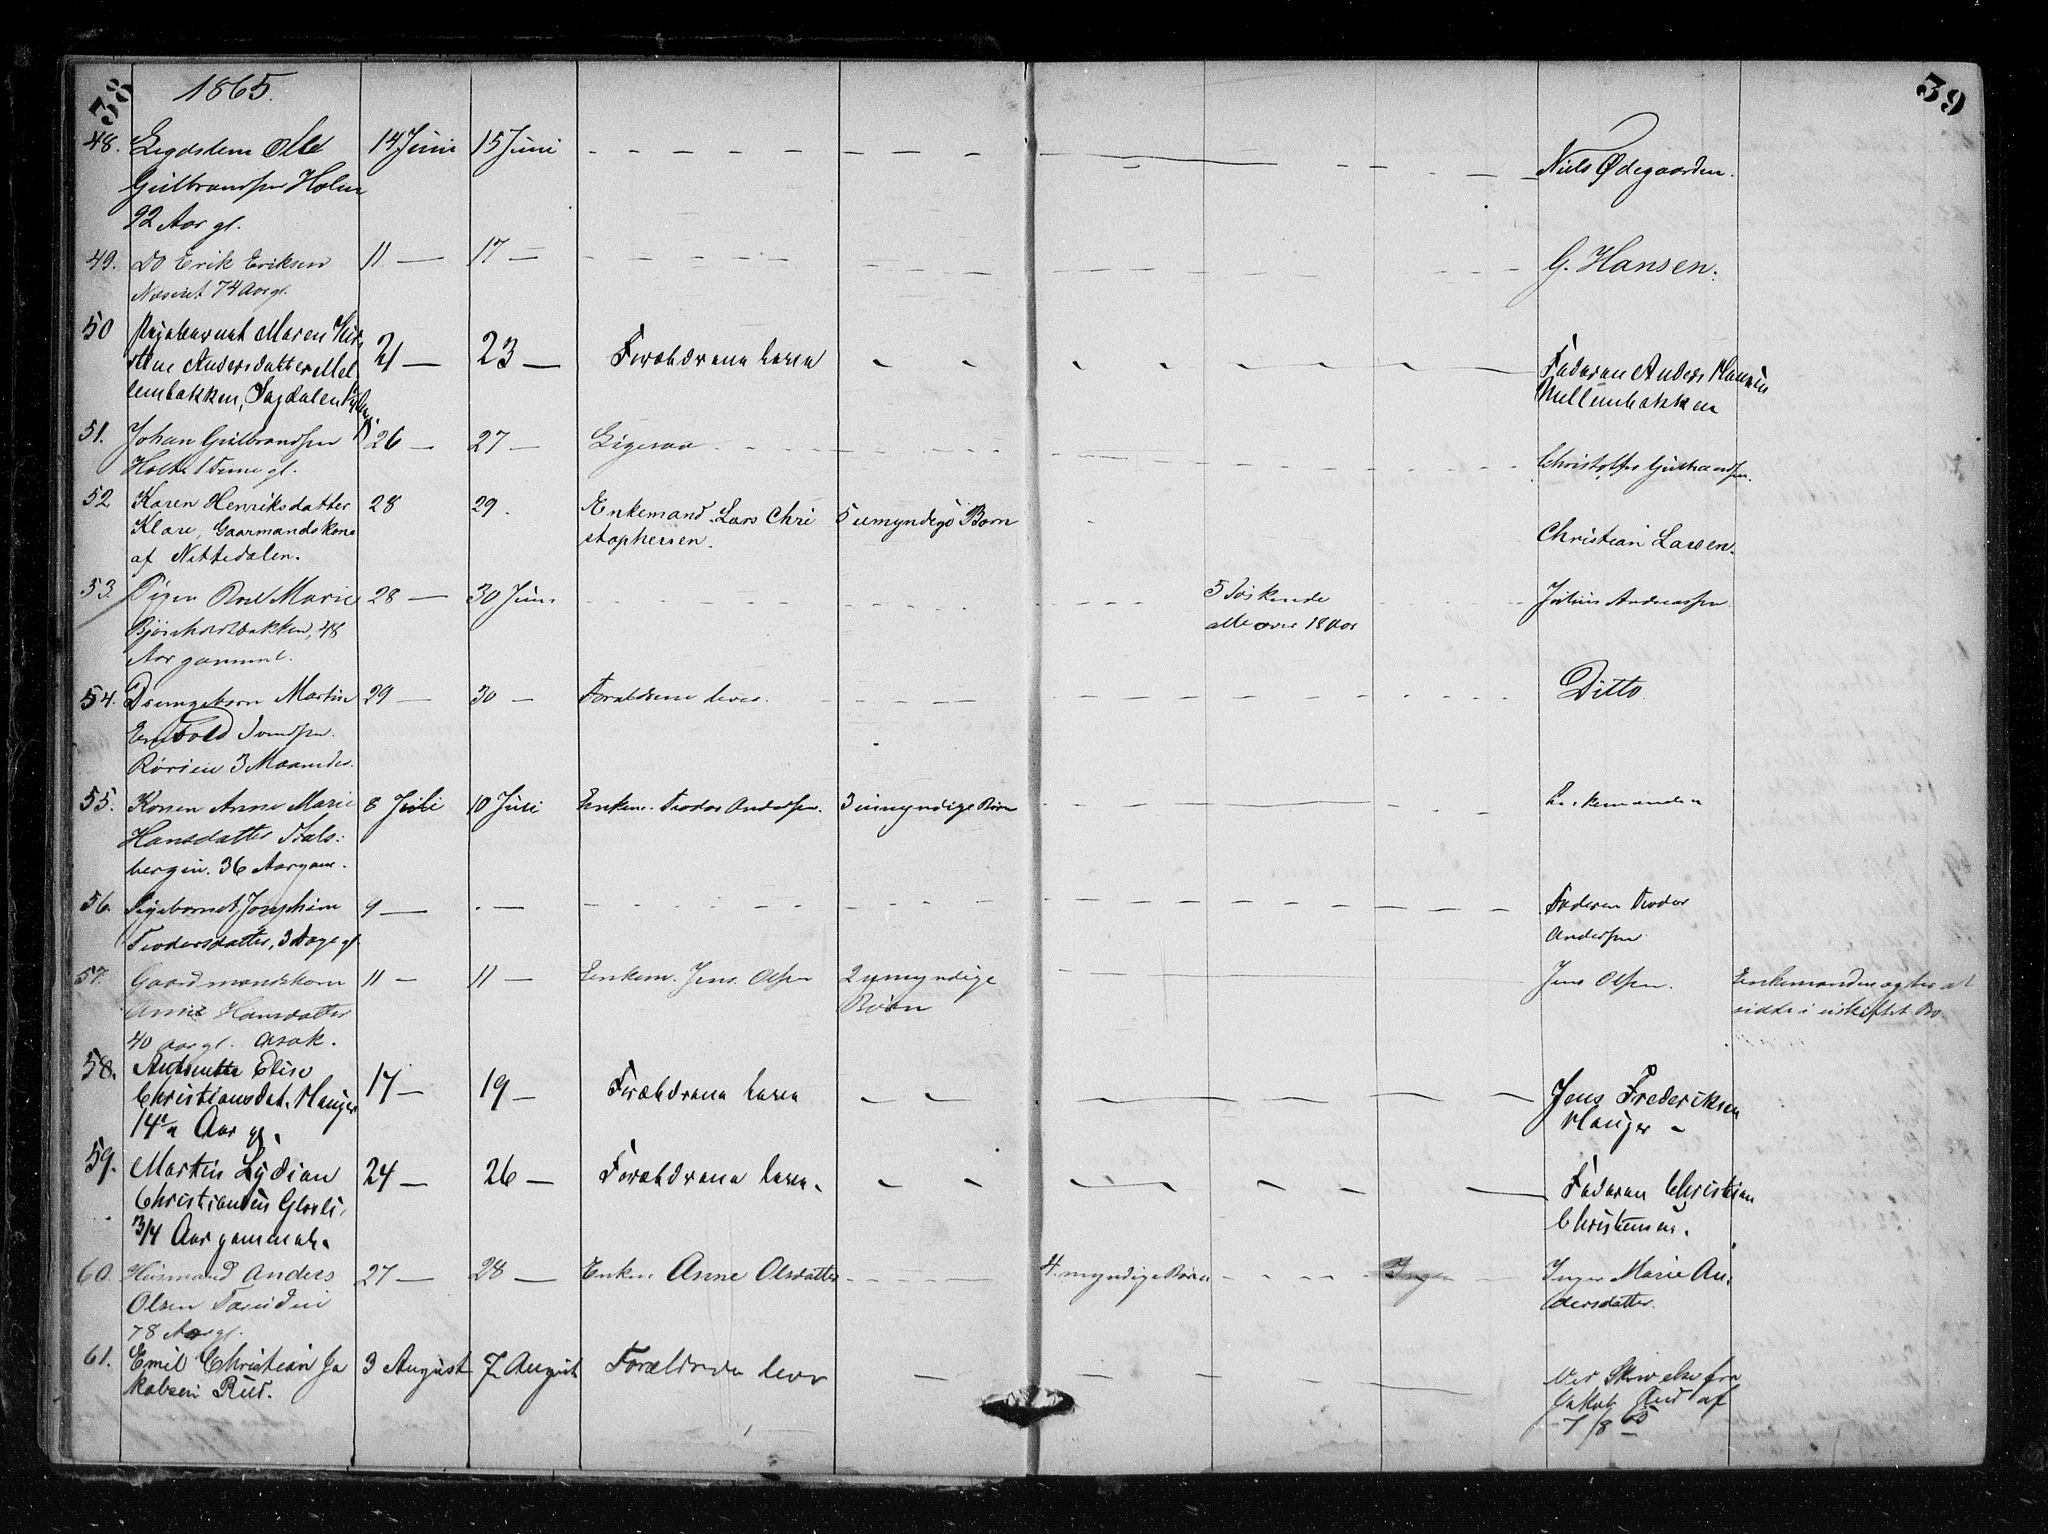 38
1865.
39
48. Lægdslem Ole 14 Juni 15 Juni
Gulbrandsen Holm Niels Ødegaarden.
92 Aar gl.
49. Do Erik Eriksen 11 — 17 — G. Hansen.
Næseret 74 Aar gl.
50 Pigebarnet Maren Kir-
stine Andersdatter Mel 21 — 23 — Forældrene leven Faderen Anders Hansen
lembakken, Mellembakken
51. Johan Gulbrandsen 26 — 27 — Ligesaa Christoffer Gulbrandsen.
52 Karen Henriksdatter 28 29. Enkemand Lars Chri 5 umyndige Børn
Klare, Gaarmandskone stophersen. Christian Larsen.
af Nittedalen.
53. Pigen Marie 28 — 30 Juni 5 Søskende Julius Andreassen
48 alle over 18 Aar
Aar gammel.
54. Drengebarn Martin 29 — 30 — Forældrene lever. Ditto.
3 Maaneder.
55. Konen Anne Marie 8 Juli 10 Juli Enkem. Teodor Andersen. 3 umyndige Børn Enkemanden
Hansdatter Stals-
bergin. 36 Aar gam.
56. Pigebarnet Josephine 9 — . — Faderen Teodor
Teodorsdatter, 3 Dage gl. Andersen
57. Gaardmandskone 11 — 11 — Enkem. Jens Olsen 2 umyndige Jens Olsen. Enkemanden agter at
Anne Hansdatter Børn sidde i uskiftet Bo.
40 aar gl. Asak.
58. Elise
Christiansdat. Hauger 17 — 19 — Forældrene leven Jens Frederiksen
14½ Aar gl. Hauger —
59. Martin Lydian 24 — 26 — Forældrene leven. Faderen Christian
Christiansen Christensen.
¾ Aar gammel.
60. Husmand Anders 27 — 28 — Enken Anne Olsdatter 4. myndige Børn Ingen Inger Marie An-
Olsen dersdatter.
78 Aar gl.
61. Emil Christian Ja 3 August 7 August Forældrene lever Ved Skrivelse fra
kobsen Rud. Jakob Rud af
7/8 65